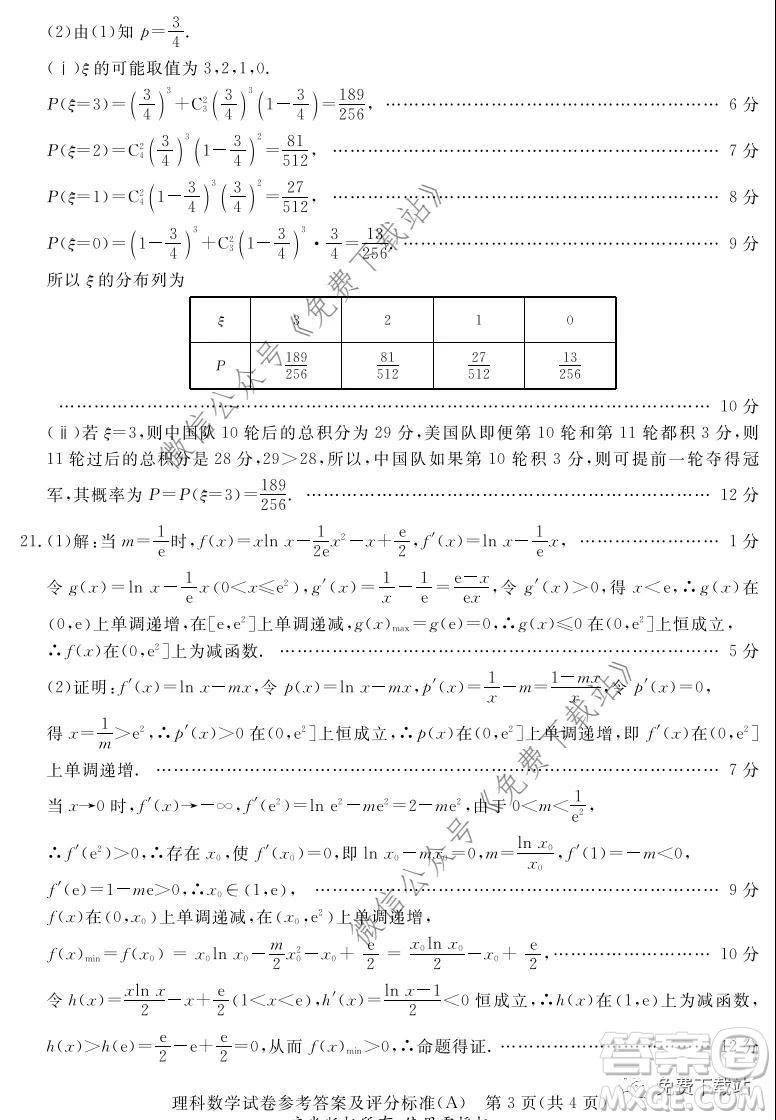 (2)由(1)知 p=3/4.
(ⅰ)ξ的可能取值为 3,2,1,0.
P(ξ=3)=(3/4)^3+C_3^2(3/4)^3(1-3/4)=189/256, …… 6 分
P(ξ=2)=C_4^2(3/4)^3(1-3/4)^2=81/512, …… 7 分
P(ξ=1)=C_4^2(1-3/4)^3(3/4)^2=27/512, …… 8 分
P(ξ=0)=(1-3/4)^3+C_3^2(1-3/4)^3·3/4=13/256, …… 9 分
所以 ξ 的分布列为
ξ 3 2 1 0
P 189/256 81/512 27/512 13/256
…… 10 分
(ⅱ)若 ξ=3,则中国队 10 轮后的总积分为 29 分,美国队即便第 10 轮和第 11 轮都积 3 分,则
11 轮过后的总积分是 28 分,29>28,所以,中国队如果第 10 轮积 3 分,则可提前一轮夺得冠
军,其概率为 P=P(ξ=3)=189/256. …… 12 分
21.(1)解:当 m=1/e 时,f(x)=xln x-1/2e x^2-x+e/2,f′(x)=ln x-1/e x, …… 1 分
令 g(x)=ln x-1/e x(0<x≤e^2),g′(x)=1/x-1/e=e-x/ex,令 g′(x)>0,得 x<e,∴g(x)在
(0,e)上单调递增,在[e,e^2]上单调递减,g(x)_max=g(e)=0,∴g(x)≤0 在(0,e^2]上恒成立,
∴f(x)在(0,e^2]上为减函数. …… 5 分
(2)证明:f′(x)=ln x-mx,令 p(x)=ln x-mx,p′(x)=1/x-m=1-mx/x,令 p′(x)=0,
得 x=1/m>e^2,∴p′(x)>0 在(0,e^2]上恒成立,∴p(x)在(0,e^2]上单调递增,即 f′(x)在(0,e^2]
上单调递增. …… 7 分
当 x→0 时,f′(x)→-∞,f′(e^2)=ln e^2-me^2=2-me^2,由于 0<m<1/e^2,
∴f′(e^2)>0,∴存在 x_0,使 f′(x_0)=0,即 ln x_0-mx_0=0,m=ln x_0/x_0,f′(1)=-m<0,
f′(e)=1-me>0,∴x_0∈(1,e), …… 9 分
f(x)在(0,x_0)上单调递减,在(x_0,e^2)上单调递增,
f(x)_min=f(x_0) = x_0ln x_0-m/2 x_0^2-x_0+ e/2 = x_0ln x_0/2-x_0+ e/2, …… 10 分
令 h(x)=xln x/2-x+e/2(1<x<e),h′(x)=ln x-1/2<0 恒成立,∴h(x)在(1,e)上为减函数,
h(x)>h(e)=e/2-e+e/2=0,从而 f(x)_min>0,∴命题得证. …… 12 分
理科数学试卷参考答案及评分标准(A) 第 3 页(共 4 页)
微信公众号《免费下载站》
微信公众号《免费下载站》
免费下载站